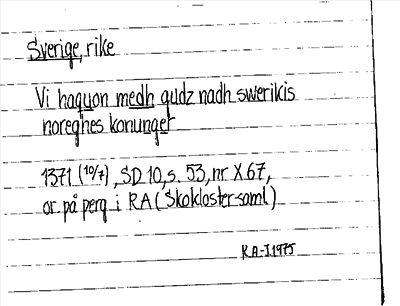 Sverige, rike
Vi haquon medh gudz nadh swerikis
noreghes konunger
1371 (10/7), SD 10, s. 53, nr X 67,
or. på perg i RA (Skokloster-saml)
K.A.-J. 1975